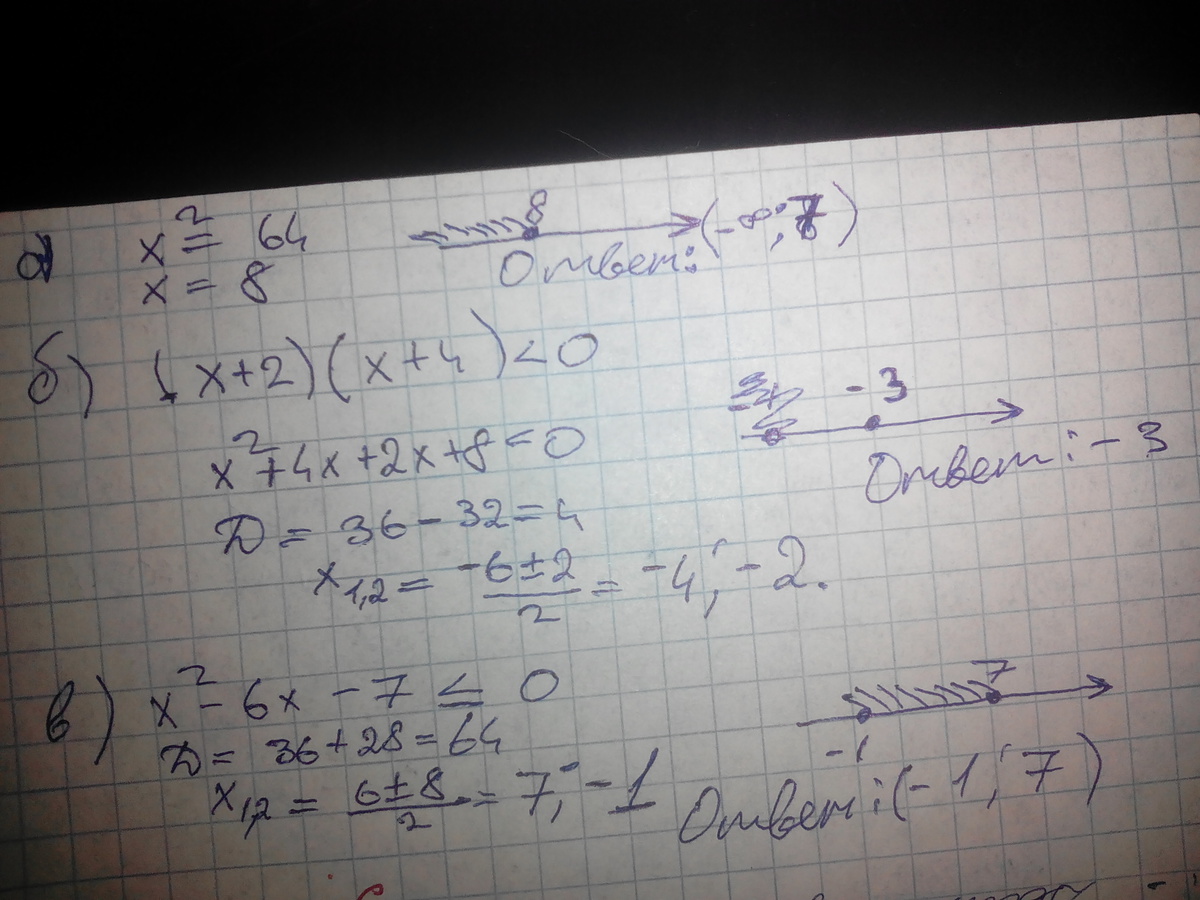 а) x² = 64
x = 8
8
Ответ: (-∞; 7)
б) (x+2)(x+4)<0
x²+4x+2x+8<0
D = 36 - 32 = 4
x1,2 = -6±2/2 = -4; -2.
-3
Ответ: -3
в) x² - 6x - 7 ≤ 0
D = 36+28=64
x1,2 = 6±8/2 = 7; -1
-1 7
Ответ: (-1; 7)